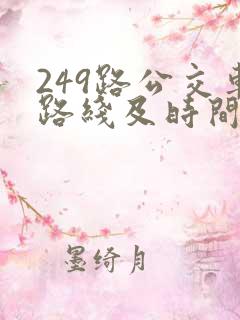 249路公交車
路綫及時間
墨绮月